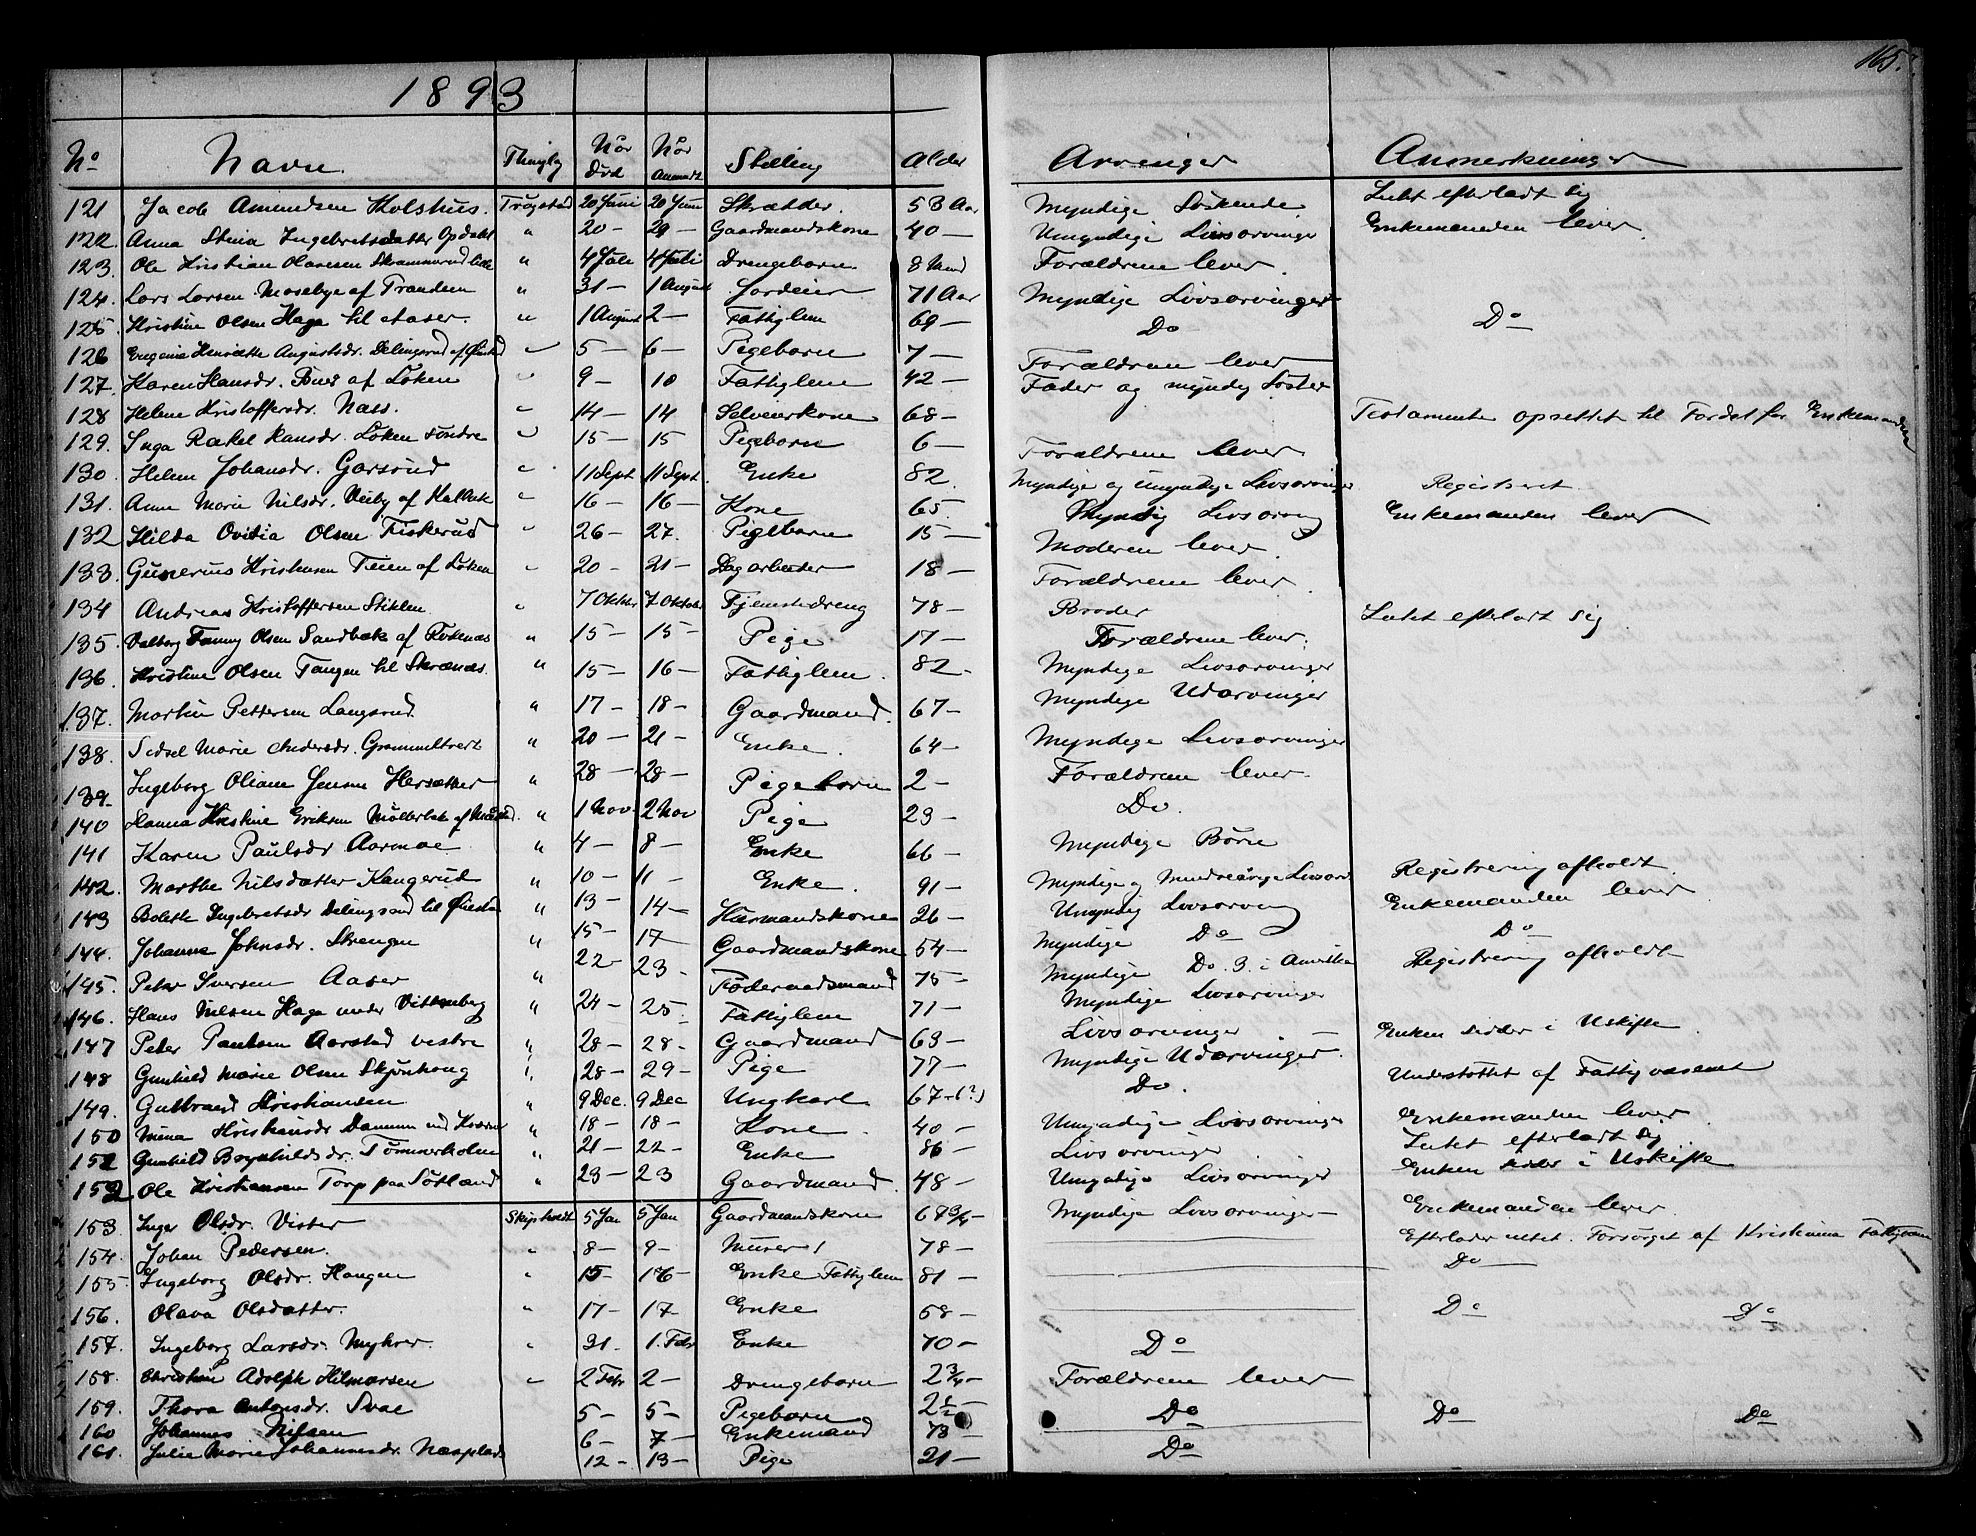 165.
1893
No Navn Thinglag Når Død Når Anmeldt Stilling Alder Arvinger Anmerkninger
121 Jacob Amundsen Kolshus. Trøgstad 20 Juni 20 Juni Skrædder. 53 Aar Myndige Søskende Intet efterladt sig
122. Anna Stina Ingebretsdatter Opdahl " 20 - 29 - Gaardmandskone 40 - Umyndige Livsarvinger Enkemanden lever
123. Ole Kristian Olavesen Skammerud lille " 4 Juli 4 Juli Drengebarn 8 Mnd Forældrene lever.
124. Lars Larsen Mosebye af Trandem " 31 - 1 August Jordeier 71 Aar Myndige Livsarvinger
125. Kristine Olsen Haga til Aaser. " 1 August 2 - Fattiglem 69 - Do Do
126 Eugenie Henriette Augustsdr. Delingsrud af " 5 - 6 - Pigebarn 7 - Forældrene lever
127. Karen Hansdr. af Løken " 9 - 10 Fattiglem 42 - Fader og myndig Søster
128 Helene Kristoffersdr. Næss. " 14 - 14 Selveierkone 68 - Testamente opsettet til Fordel for Enkemanden
129. Inga Rakel Hansdr. Løken søndre " 15 - 15 Pigebarn 6 - Forældrene lever
130. Helene Johansdr. Garsrud " 11 Sept 11 Sept. Enke 82. Myndige og Umyndige Livsarvinger Registreret
131. Anne Marie Nilsdr. Visby af " 16 - 16 - Kone 65. Myndig Livsarving Enkemanden lever
132 Hilda Ovidia Olsen Fiskerud " 26 - 27. Pigebarn 15 - Moderen lever.
133. Gunerius Kristiansen af Løken " 20 - 21 - Dagarbeider 18 - Forældrene lever.
134 Andreas Kristoffersen Stiklen. " 7 Oktober 7 Oktober Tjenestedreng 78 - Broder Intet efterladt sig
135. Valborg Fanny Olsen Sandbæk af " 15 - 15 - Pige 17 - Forældrene lever.
136. Kristine Olsen Tangen til Skrænæs. " 15 - 16 - Fattiglem. 82 - Myndige Livsarvinger
137. Martin Pettersen Langsrud. " 17 - 18 - Gaardmand. 67 - Myndige Udarvinger
138. Sidsel Marie Andersdr. Grammeltvert " 20 - 21 - Enke. 64 - Myndige Livsarvinger
139. Ingeborg Oliane Jensen Hersæther " 28 - 28 - Pigebarn 2 - Forældrene lever.
140 Hanna Kristine Eriksen Møllerbak af " 1 Nov. 2 Nov Pige 23 - Do.
141 Karen Paulsdr Aarmoe. " 4 - 8 - Enke 66 - Myndige Børn
142. Marthe Nilsdatter Kangerud " 10 - 11 - Enke. 91 - Myndige og Mindreårige Livsarv. Registrering afholdt.
143 Bolette Ingebretsdr Delingsrud til " 13 - 14 - Husmandskone 26 - Umyndig Livsarving Enkemanden lever
144. Johanne Johnsdr. Skrengen " 15 - 17 Gaardmandskone 54 - Myndige Do Do
145. Peter Iversen Aaser " 22 - 23 - Føderaadsmand 75 - Myndige Do. 3 i Amerika Registrering afholdt
146. Hans Nilsen Haga under Vittenberg " 24 - 25 - Fattiglem 71 - Myndige Livsarvinger
147 Peter Paulsen Aarstad vestre " 28 - 28 - Gaardmand 63 - Livsarvinger - Enken sidder i Uskifte
148 Gunhild Marie Olsen Skjønhaug " 28 - 29 - Pige 77 - Myndige Udarvinger.
149. Gulbrand Kristiansen. " 9 Dec. 9 Dec Ungkarl 67 - (?) Do. Understøttet af Fattigvæsenet
150 Mina Kristiansdr Dammen " 18 - 18 - Kone. 40 - Umyndige Livsarvinger Enkemanden lever
151 Gunhild Brynhildsdr. Tømmerholen " 21 - 22 - Enke 86 - Livsarvinger Intet efterladt sig
152 Ole Kristiansen Torp paa Søtland " 23 - 23 Gaardmand. 48 - Umyndige Livsarvinger Enken sidder i Uskifte
153. Inger Olsdr. Vister Skiptvedt 5 Jan 5 Jan Gaardmandskone 67 3/4 - Myndige Livsarvinger - Enkemanden lever.
154. Johan Pedersen. " 8 - 9 - Murer 78 - Efterlader intet. Forsørget af Kristiania Fattigvæsen
155. Ingeborg Olsdr. Haugen " 15 - 16 - Enke Fattiglem 81 - Do
156. Olava Olsdatter. " 17 - 17 - Enke 58 - Do Do
157. Ingeborg Larsdr. Myhrer. " 31. 1. Febr Enke 70 - Do
158. Christian Adolph Hilmarsen " 2 Febr 2 - Drengebarn 2 3/4 - Forældrene lever
159. Thora Antonsdr. Svae 5 - 5 - Pigebarn 2 1/2 - Do Do Do
160 Johannes Nilsen 6 - 7 - Enkemand 73 -
161. Julie Marie Johannesdr. Næsplads 12 - 13 - Pige 21 - Do